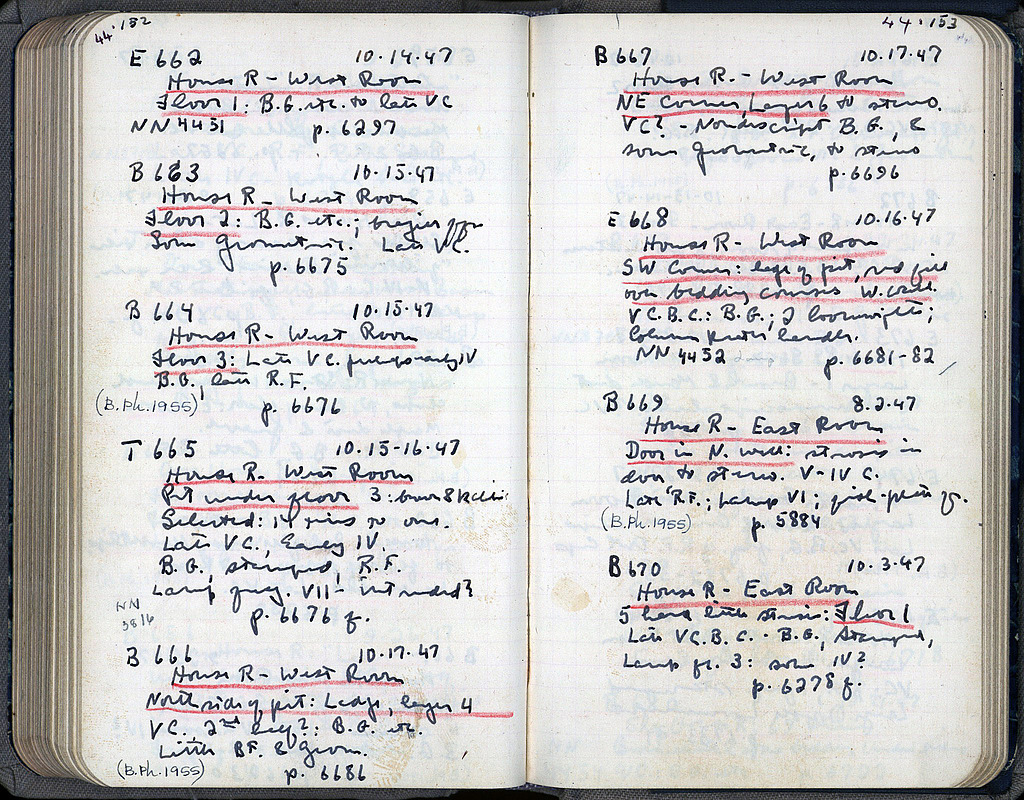 44·152
E 662 10·14·47
House R - West Room
Floor 1: B.G. etc. to late VC
NN 4431 p. 6297
B 663 10·15·47
House R - West Room
Floor 2: B.G. etc.;
Some Geometric. Late VC.
p. 6675
B 664 10·15·47
House R - West Room
Floor 3: Late VC. early IV
B.G., late R.F.
(B.Ph.1955) p. 6676
T 665 10·15-16·47
House R - West Room
Pit under floor 3:
Selected: 14 tins to one.
Late VC., Early IV.
B.G., stamped, R.F.
Lamp frag. VII - intruded?
NN
3816
p. 6676 f.
B 666 10·17·47
House R - West Room
North side of pit: Ledge, layer 4
VC. 2nd half?: B.G. etc.
Little BF. & Geom.
(B.Ph.1955) p. 6686
44·153
B 667 10·17·47
House R. - West Room
NE Corner, Layer 6 to stereo.
VC? - Nondescript B.G., &
some geometric, to stereo
p. 6696
E 668 10·16·47
House R - West Room
SW Corner: edge of pit, red fill
over bedding courses W. wall.
VC. B.C.: B.G.; 2 loomweights;
column krater handle.
NN 4452 p. 6681-82
B 669 8·2·47
House R - East Room
Door in N. wall: strosis in
door to stereo. V-IV C.
Late R.F.; Lamp VI; fish-plate fr.
(B.Ph.1955) p. 5884
B 670 10·3·47
House R - East Room
5 hard little strosis: Floor 1
Late VC.B.C. - B.G., Stamped,
Lamp fr. 3: some IV?
p. 6278 f.